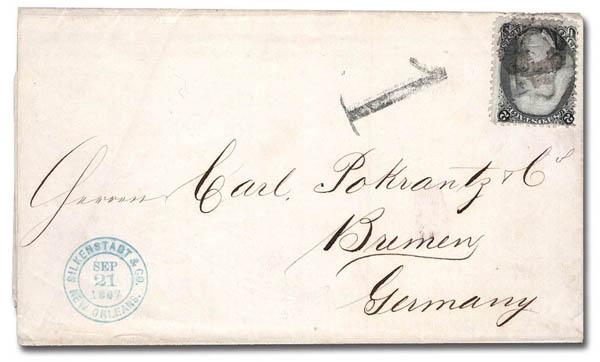 1
Herren Carl Pokrantz & Co
Bremen
Germany
SILKENSTADT & CO.
SEP
21
1867
NEW ORLEANS.